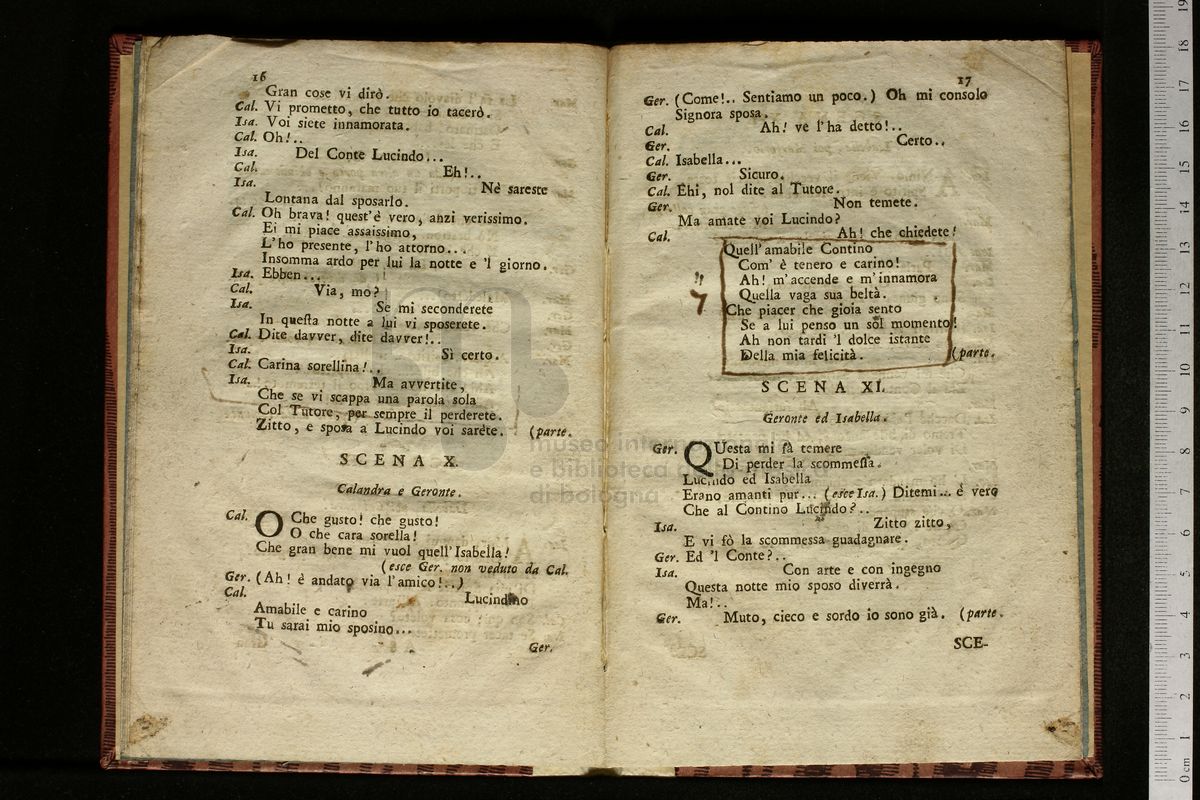 16
Gran cose vi dirò.
Cal. Vi prometto, che tutto io tacerò.
Isa. Voi siete innamorata.
Cal. Oh!..
Isa. Del Conte Lucindo...
Cal. Eh!..
Isa. Nè sareste
Lontana dal sposarlo.
Cal. Oh brava! quest'è vero, anzi verissimo.
Ei mi piace assaissimo,
L'ho presente, l'ho attorno...
Insomma ardo per lui la notte e 'l giorno.
Isa. Ebben...
Cal. Via, mo?
Isa. Se mi seconderete
In questa notte a lui vi sposerete.
Cal. Dite davver, dite davver!..
Isa. Sì certo.
Cal. Carina sorellina!..
Isa. Ma avvertite,
Che se vi scappa una parola sola
Col Tutore, per sempre il perderete.
Zitto, e sposa a Lucindo voi sarete. (parte.
SCENA X.
Calandra e Geronte.
Cal. O Che gusto! che gusto!
O che cara sorella!
Che gran bene mi vuol quell'Isabella!
(esce Ger. non veduto da Cal.
Ger. (Ah! è andato via l'amico!..)
Cal. Lucindino
Amabile e carino
Tu sarai mio sposino...
Ger.
17
Ger. (Come!.. Sentiamo un poco.) Oh mi consolo
Signora sposa.
Cal. Ah! ve l'ha detto!..
Ger. Certo..
Cal. Isabella...
Ger. Sicuro.
Cal. Ehi, nol dite al Tutore.
Ger. Non temete.
Ma amate voi Lucindo?
Cal. Ah! che chiedete!
Quell'amabile Contino
Com' è tenero e carino!
Ah! m'accende e m'innamora
Quella vaga sua beltà.
Che piacer che gioia sento
Se a lui penso un sol momento!
Ah non tardi 'l dolce istante
Della mia felicità. (parte.
SCENA XI.
Geronte ed Isabella.
Ger. QUesta mi fà temere
Di perder la scommessa.
Lucindo ed Isabella
Erano amanti pur... (esce Isa.) Ditemi... è vero
Che al Contino Lucindo?..
Isa. Zitto zitto,
E vi fò la scommessa guadagnare.
Ger. Ed 'l Conte?..
Isa. Con arte e con ingegno
Questa notte mio sposo diverrà.
Ma!..
Ger. Muto, cieco e sordo io sono già. (parte.
SCE-
museo internazionale
e biblioteca
di bologna
0 cm 1 2 3 4 5 6 7 8 9 10 11 12 13 14 15 16 17 18 19